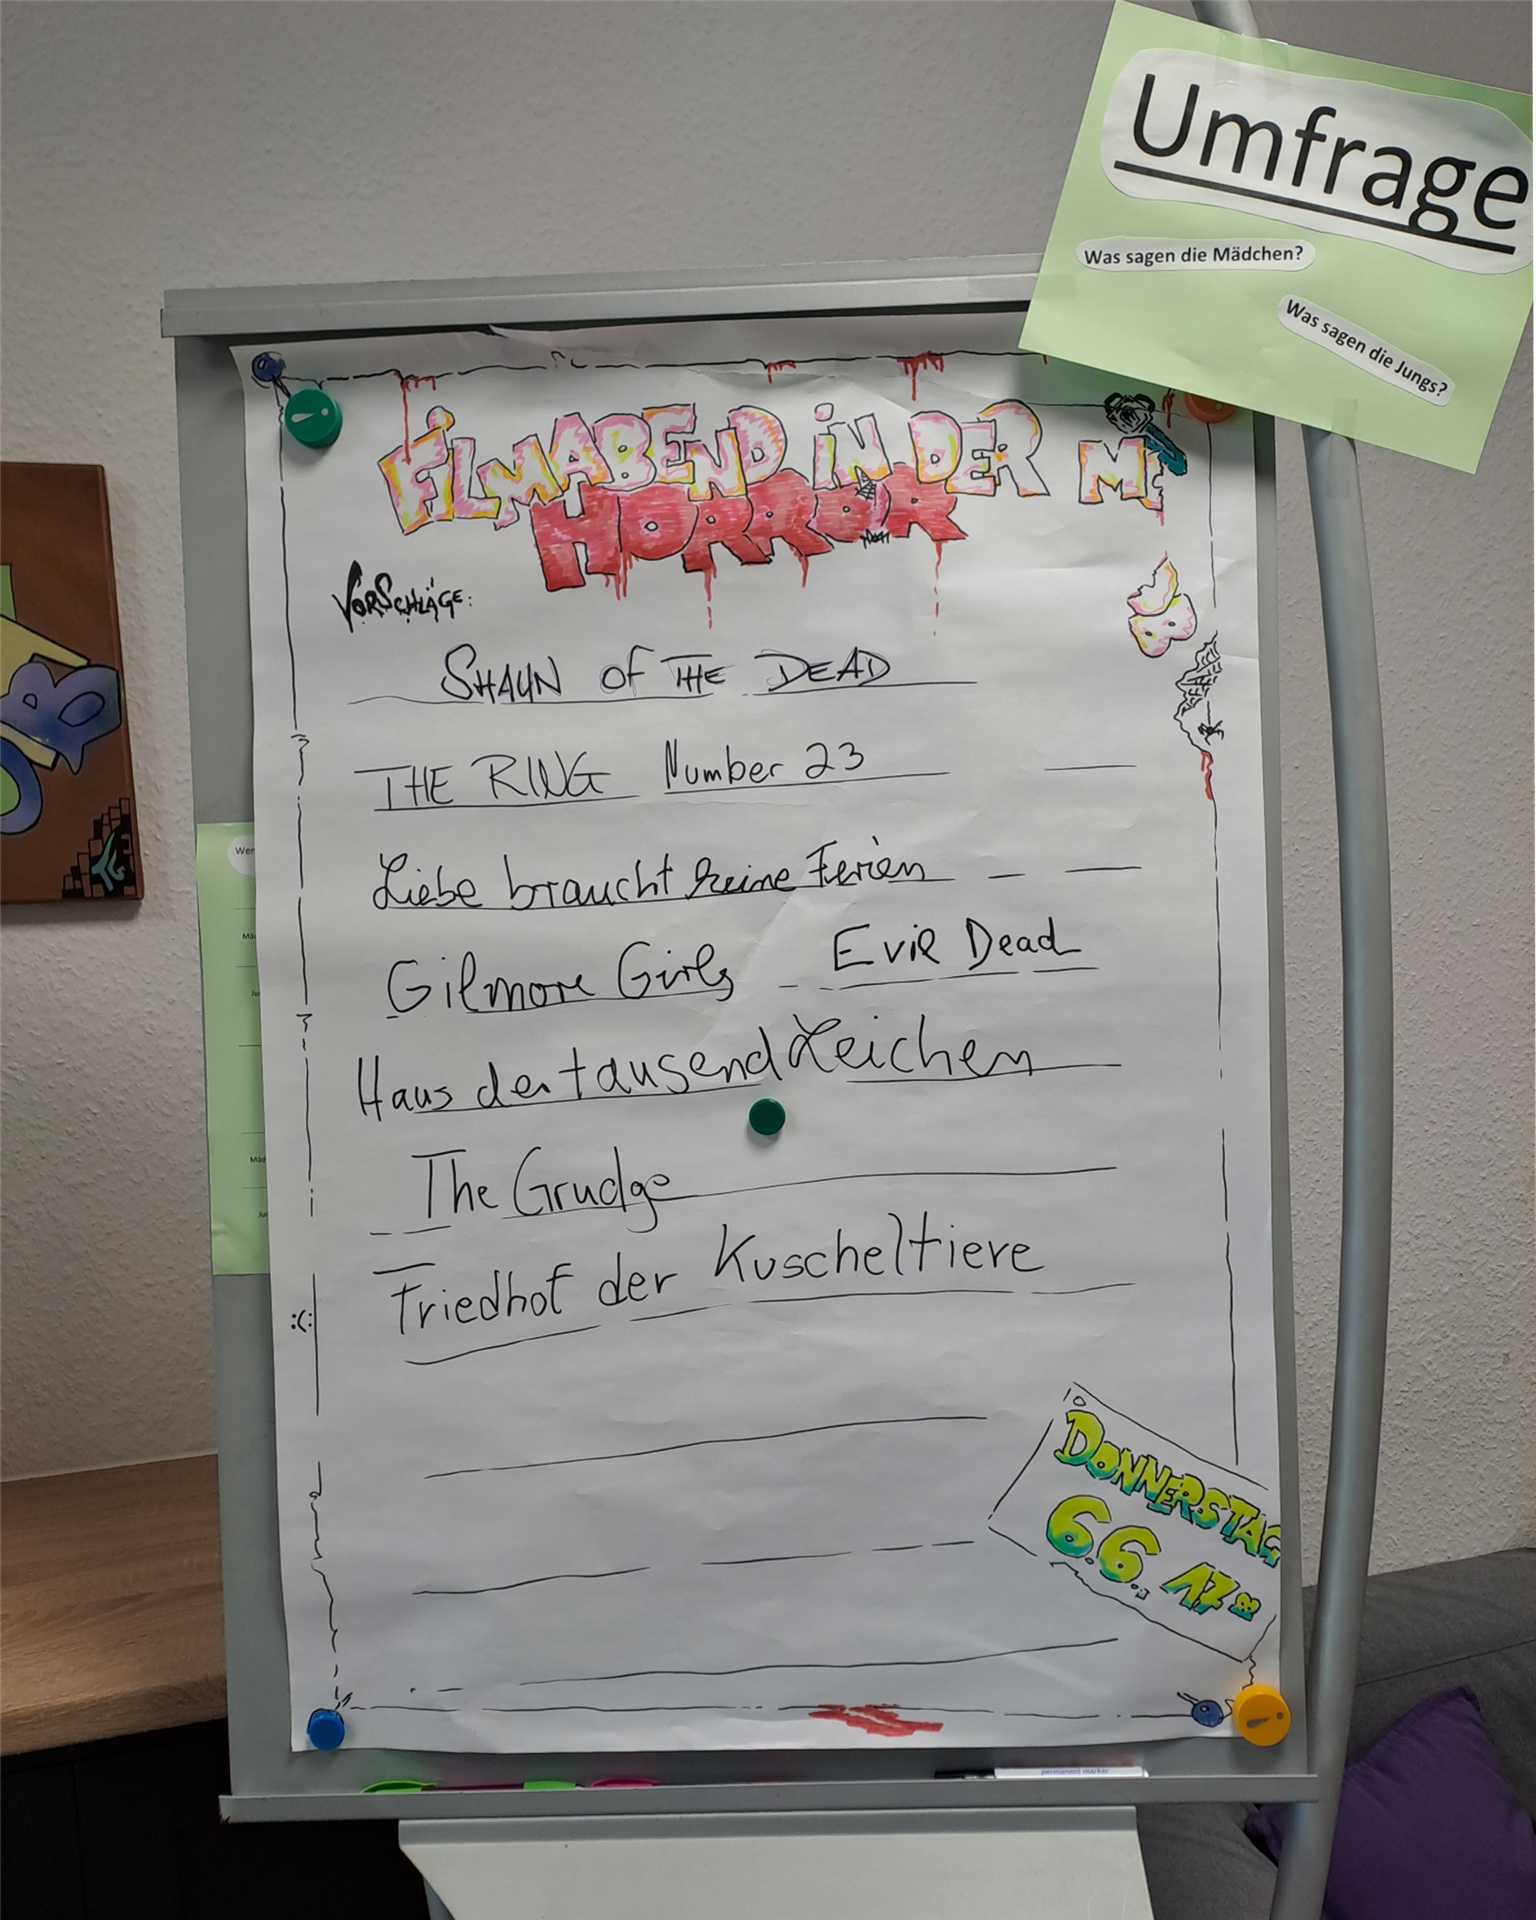 Umfrage
Was sagen die Mädchen?
Was sagen die Jungs?
FILMABEND IN DER
HORROR
VORSCHLÄGE:
SHAUN OF THE DEAD
THE RING Number 23
Liebe braucht keine Ferien
Gilmore Girls Evil Dead
Haus der tausend Leichen
The Grudge
Friedhof der Kuscheltiere
:(:
DONNERSTAG
6.6. 17
permanent marker